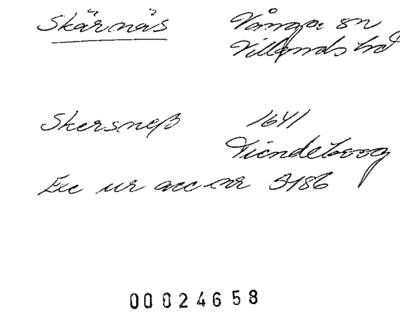 Skärnäs Vånga sn
Villands hd
Skersneß 1641
Tiendeboog
Exc ur acc nr 3186
00024658